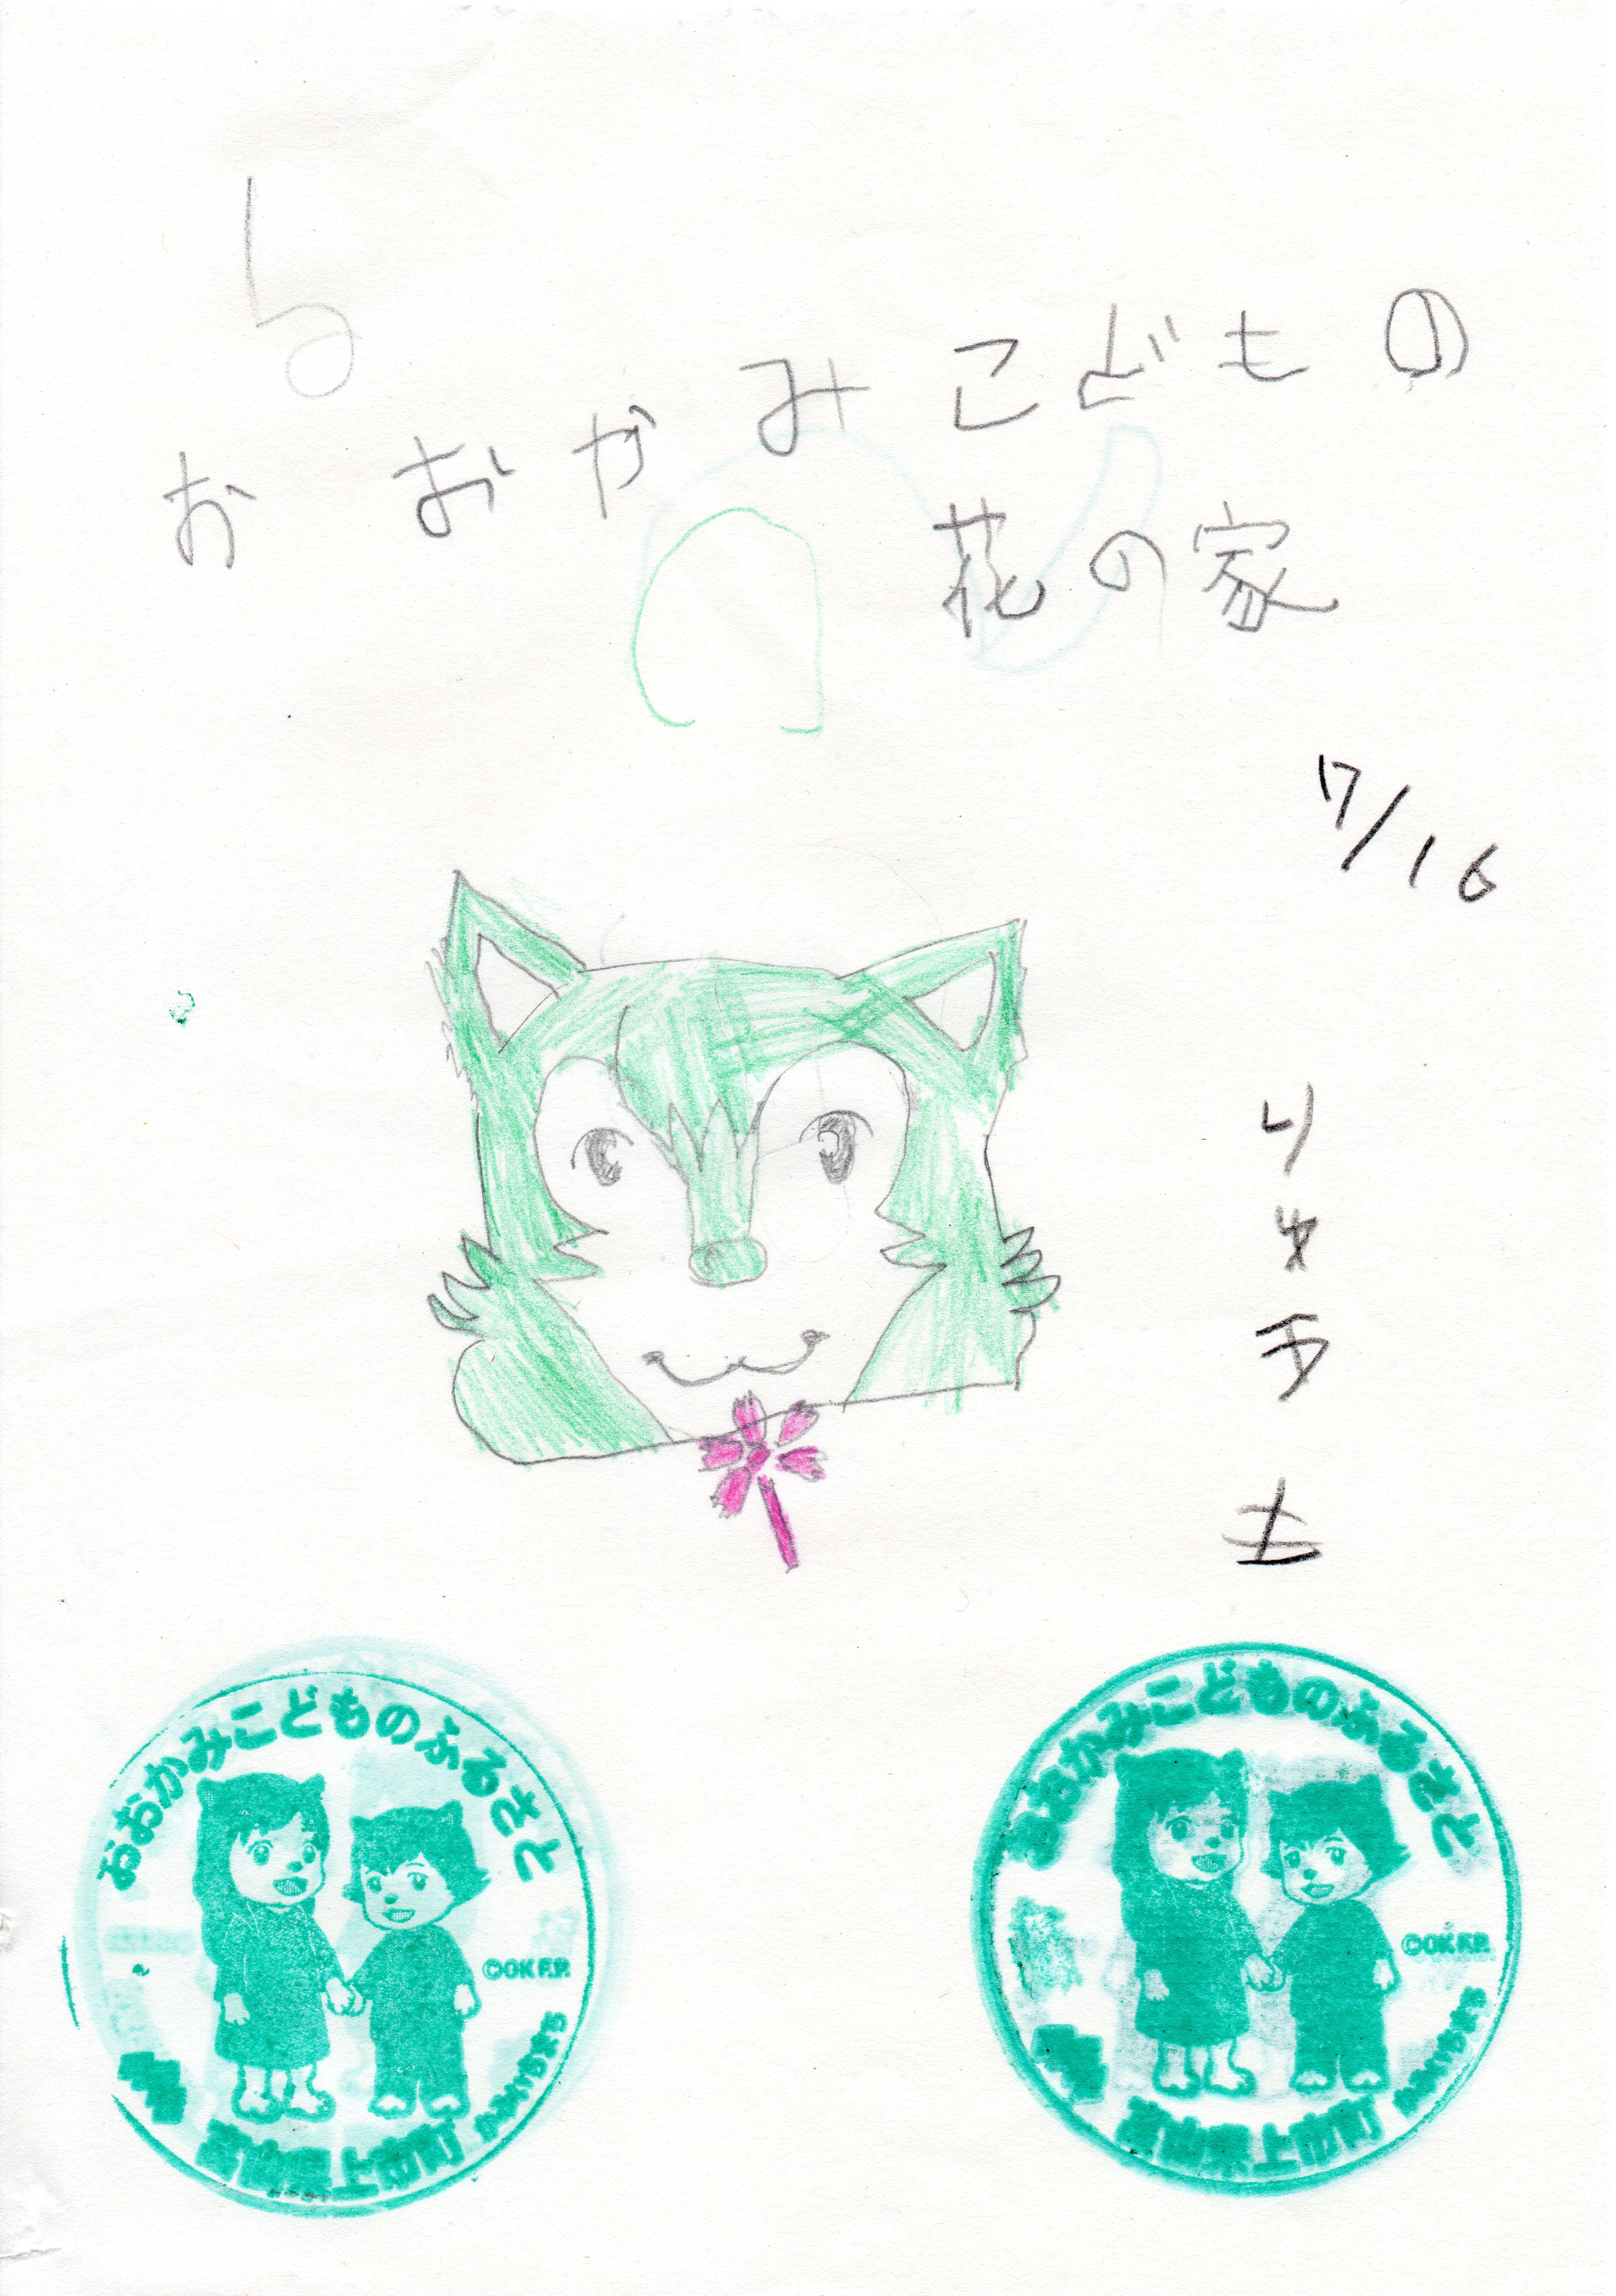 おおかみこどもの
花の家
7/16
おおかみこどものふるさと
©OK F.P.
富山県上市町 かみいちまち
おおかみこどものふるさと
©OK F.P.
富山県上市町 かみいちまち